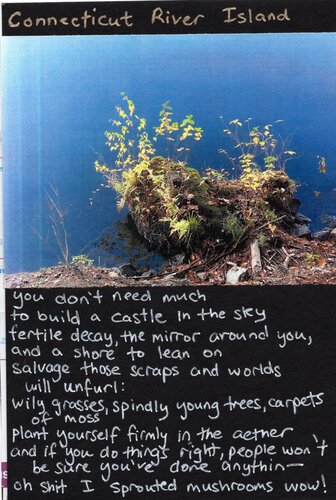 Connecticut River Island
you don't need much
to build a castle in the sky
fertile decay, the mirror around you,
and a shore to lean on
salvage those scraps and worlds
will unfurl:
wily grasses, spindly young trees, carpets
of moss
plant yourself firmly in the aether
and if you do things right, people won't
be sure you've done anythin—
oh shit I sprouted mushrooms wow!